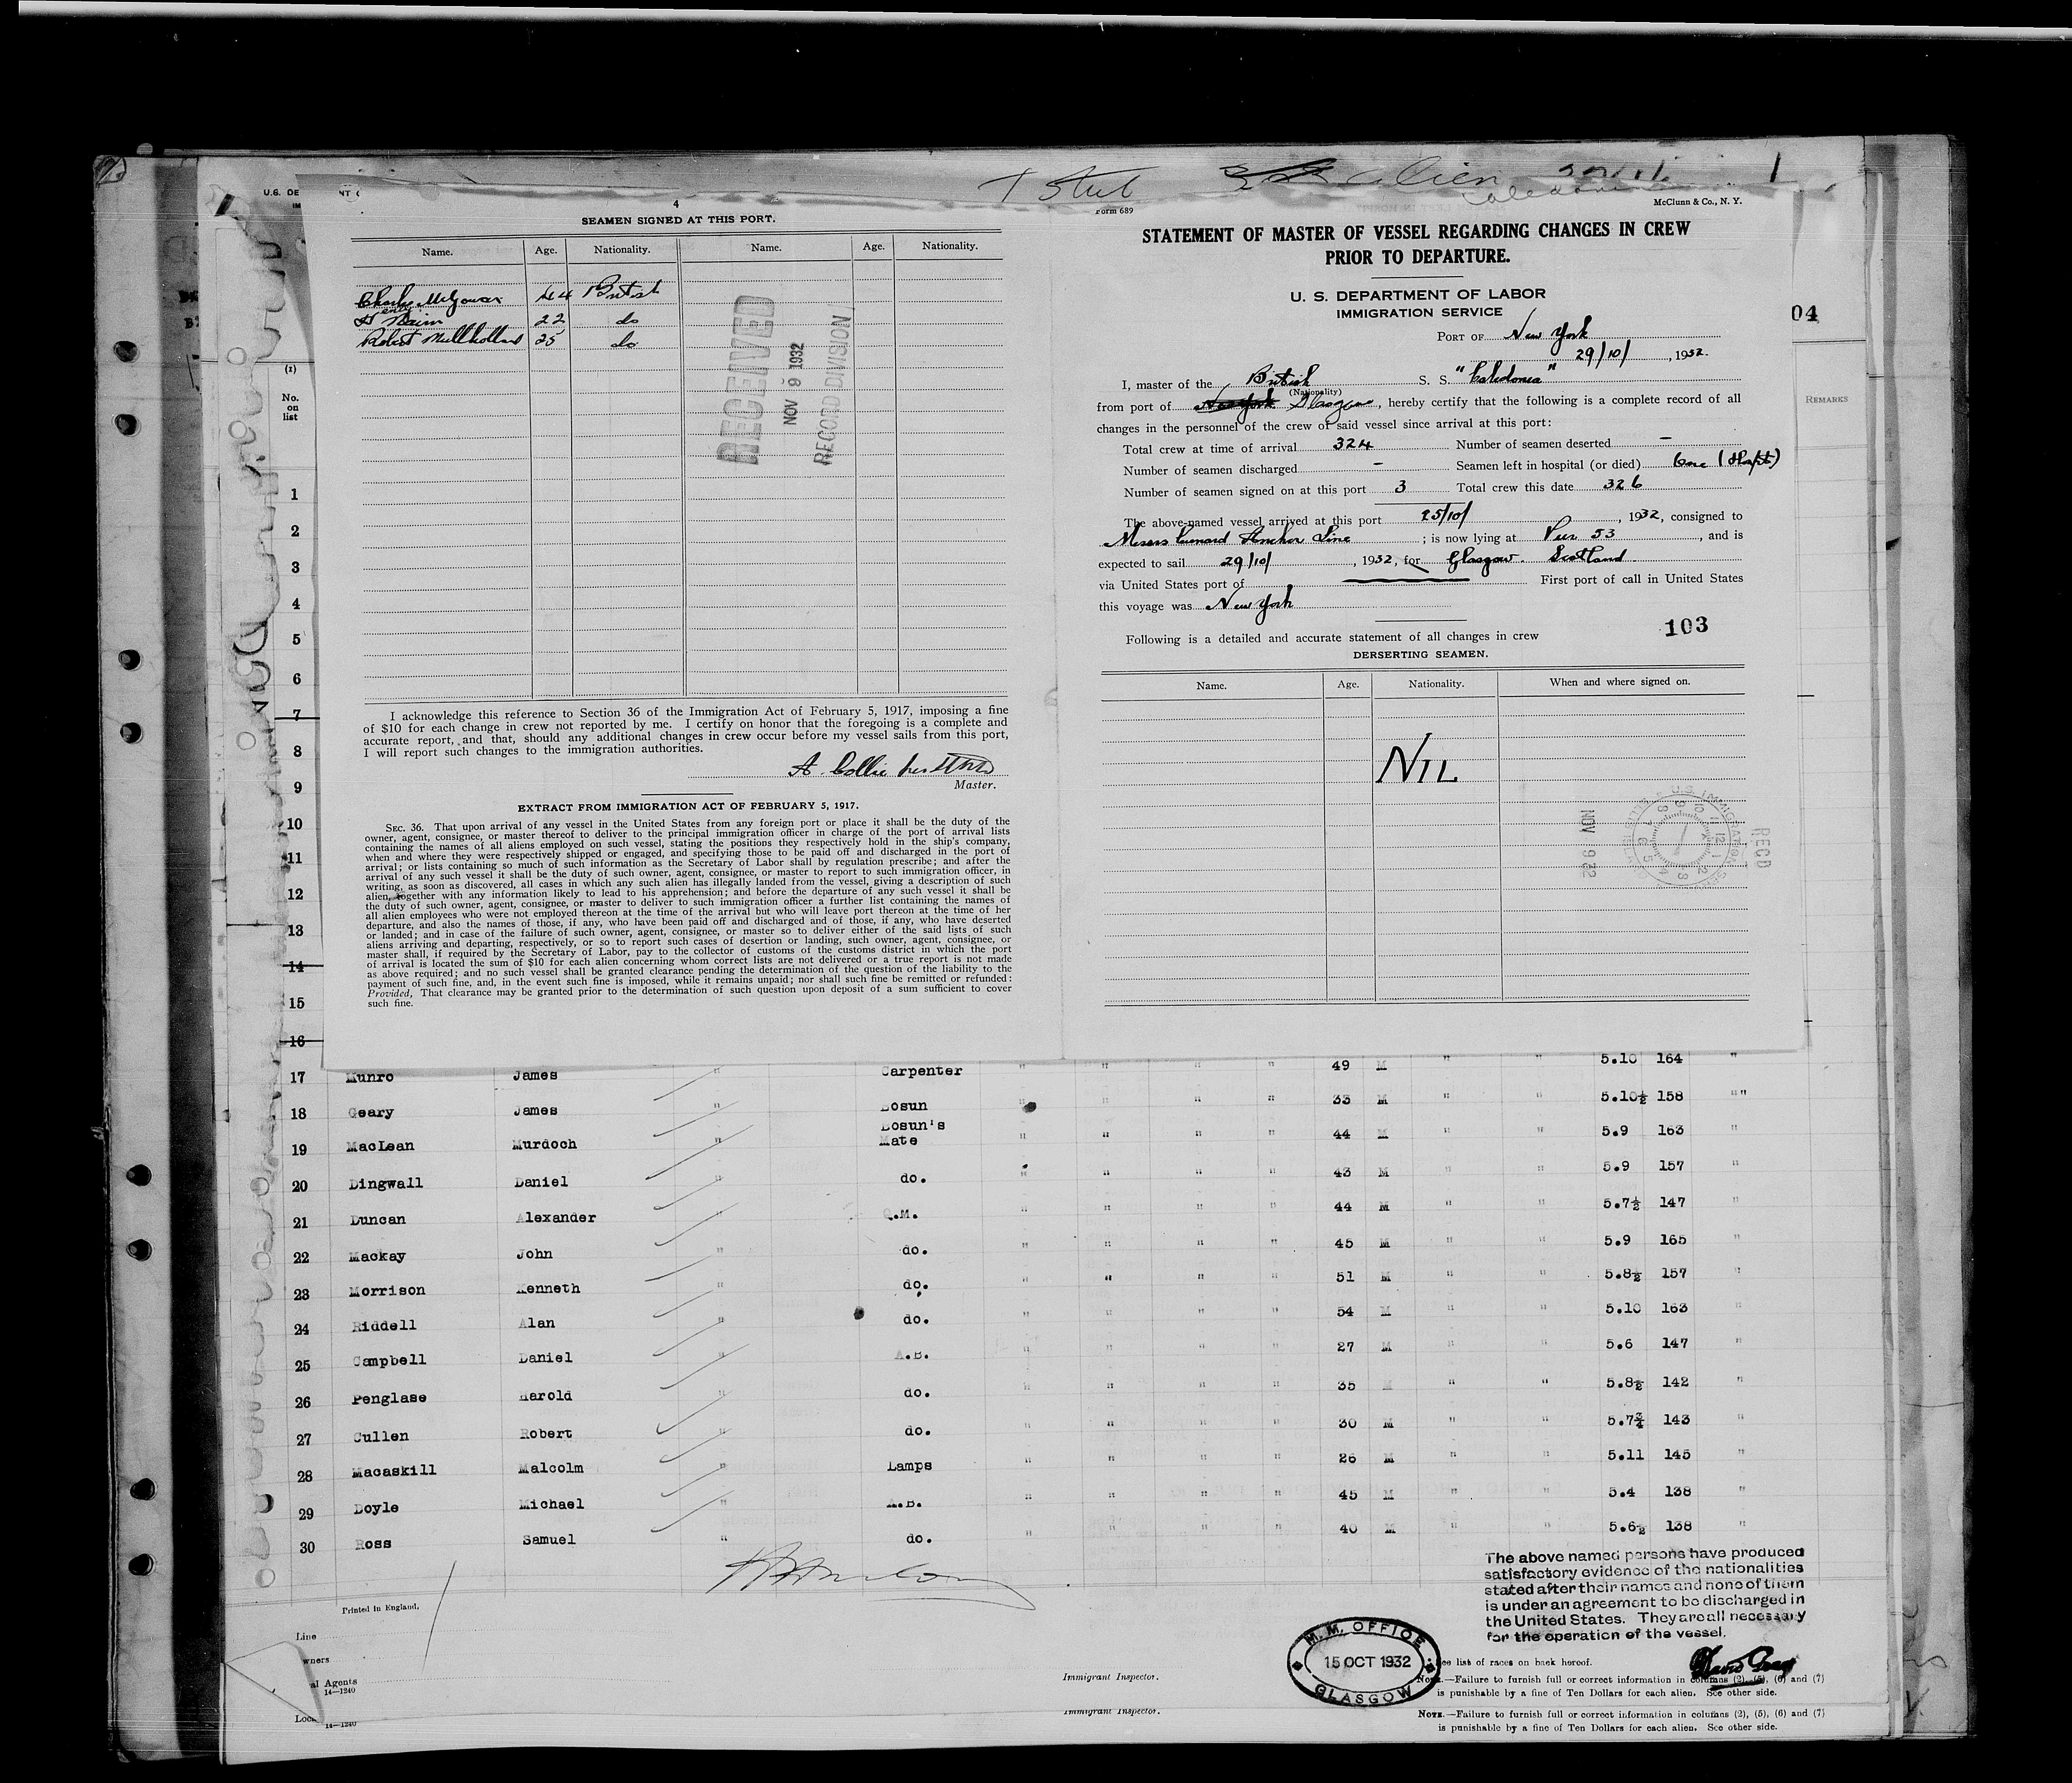 4
SEAMEN SIGNED AT THIS PORT.
Name. Age. Nationality. Name. Age. Nationality.
Charles McGowan 44 British
Henry Nairn 22 do
Robert Mullholland 25 do
RECEIVED
NOV 9 1932
RECORD DIVISION
I acknowledge this reference to Section 36 of the Immigration Act of February 5, 1917, imposing a fine
of $10 for each change in crew not reported by me. I certify on honor that the foregoing is a complete and
accurate report, and that, should any additional changes in crew occur before my vessel sails from this port,
I will report such changes to the immigration authorities.
A Collie
Master.
EXTRACT FROM IMMIGRATION ACT OF FEBRUARY 5, 1917.
SEC. 36. That upon arrival of any vessel in the United States from any foreign port or place it shall be the duty of the
owner, agent, consignee, or master thereof to deliver to the principal immigration officer in charge of the port of arrival lists
containing the names of all aliens employed on such vessel, stating the positions they respectively hold in the ship's company,
when and where they were respectively shipped or engaged, and specifying those to be paid off and discharged in the port of
arrival; or lists containing so much of such information as the Secretary of Labor shall by regulation prescribe; and after the
arrival of any such vessel it shall be the duty of such owner, agent, consignee, or master to report to such immigration officer, in
writing, as soon as discovered, all cases in which any such alien has illegally landed from the vessel, giving a description of such
alien, together with any information likely to lead to his apprehension; and before the departure of any such vessel it shall be
the duty of such owner, agent, consignee, or master to deliver to such immigration officer a further list containing the names of
all alien employees who were not employed thereon at the time of the arrival but who will leave port thereon at the time of her
departure, and also the names of those, if any, who have been paid off and discharged and of those, if any, who have deserted
or landed; and in case of the failure of such owner, agent, consignee, or master so to deliver either of the said lists of such
aliens arriving and departing, respectively, or so to report such cases of desertion or landing, such owner, agent, consignee, or
master shall, if required by the Secretary of Labor, pay to the collector of customs of the customs district in which the port
of arrival is located the sum of $10 for each alien concerning whom correct lists are not delivered or a true report is not made
as above required; and no such vessel shall be granted clearance pending the determination of the question of the liability to the
payment of such fine, and, in the event such fine is imposed, while it remains unpaid; nor shall such fine be remitted or refunded:
Provided, That clearance may be granted prior to the determination of such question upon deposit of a sum sufficient to cover
such fine.
Form 689
McClunn & Co., N. Y.
STATEMENT OF MASTER OF VESSEL REGARDING CHANGES IN CREW
PRIOR TO DEPARTURE.
U. S. DEPARTMENT OF LABOR
IMMIGRATION SERVICE
PORT OF New York
29/10/, 1932.
I, master of the British S. S. "Caledonia"
(Nationality)
from port of New York Glasgow, hereby certify that the following is a complete record of all
changes in the personnel of the crew of said vessel since arrival at this port:
Total crew at time of arrival 324 Number of seamen deserted -
Number of seamen discharged - Seamen left in hospital (or died) One (Hospt.)
Number of seamen signed on at this port 3 Total crew this date 326
The above-named vessel arrived at this port 25/10/, 1932, consigned to
Messrs Cunard Anchor Line; is now lying at Pier 53, and is
expected to sail 29/10/, 1932, for Glasgow. Scotland.
via United States port of First port of call in United States
this voyage was New York
103
Following is a detailed and accurate statement of all changes in crew
DERSERTING SEAMEN.
Name. Age. Nationality. When and where signed on.
NIL
RECD
NOV 9 32
04
REMARKS
(1)
No.
on
list
1
2
3
4
5
6
7
8
9
10
11
12
13
14
15
16
17 Munro James " Carpenter " " " " 49 M " " 5.10 164 "
18 Geary James " Bosun " " " " 33 M " " 5.10½ 158 ""
19 MacLean Murdoch " Bosun's Mate " " " " 44 M " " 5.9 163 "
20 Dingwall Daniel " do. " " " " 43 M " " 5.9 157 "
21 Duncan Alexander " Q.M. " " " " 44 M " " 5.7½ 147 "
22 Mackay John " do. " " " " 45 M " " 5.9 165 "
23 Morrison Kenneth " do. " " " " 51 M " " 5.8½ 157 "
24 Riddell Alan " do. " " " " 54 M " " 5.10 163 "
25 Campbell Daniel " A.B. " " " " 27 M " " 5.6 147 "
26 Penglase Harold " do. " " " " 35 M " " 5.8½ 142 "
27 Cullen Robert " do. " " " " 30 M " " 5.7¾ 143 "
28 Macaskill Malcolm " Lamps " " " " 26 M " " 5.11 145 "
29 Doyle Michael " A.B. " " " " 45 M " " 5.4 138 "
30 Ross Samuel " do. " " " " 40 M " " 5.6½ 138 "
The above named persons have produced
satisfactory evidence of the nationalities
stated after their names and none of them
is under an agreement to be discharged in
the United States. They are all necessary
for the operation of the vessel.
Printed in England.
Line
wners
al Agents
14—1240
M. M. OFFICE
15 OCT 1932
GLASGOW
Immigrant Inspector.
ee list of races on back hereof.
NOTE.—Failure to furnish full or correct information in columns (2), (5), (6) and (7)
is punishable by a fine of Ten Dollars for each alien. See other side.
Loc
14—1240
Immigrant Inspector.
NOTE.—Failure to furnish full or correct information in columns (2), (5), (6) and (7)
is punishable by a fine of Ten Dollars for each alien. See other side.